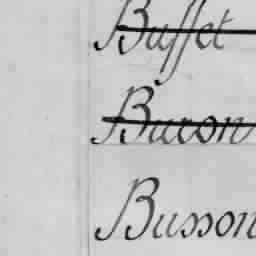 Buffet
Buron
Busson